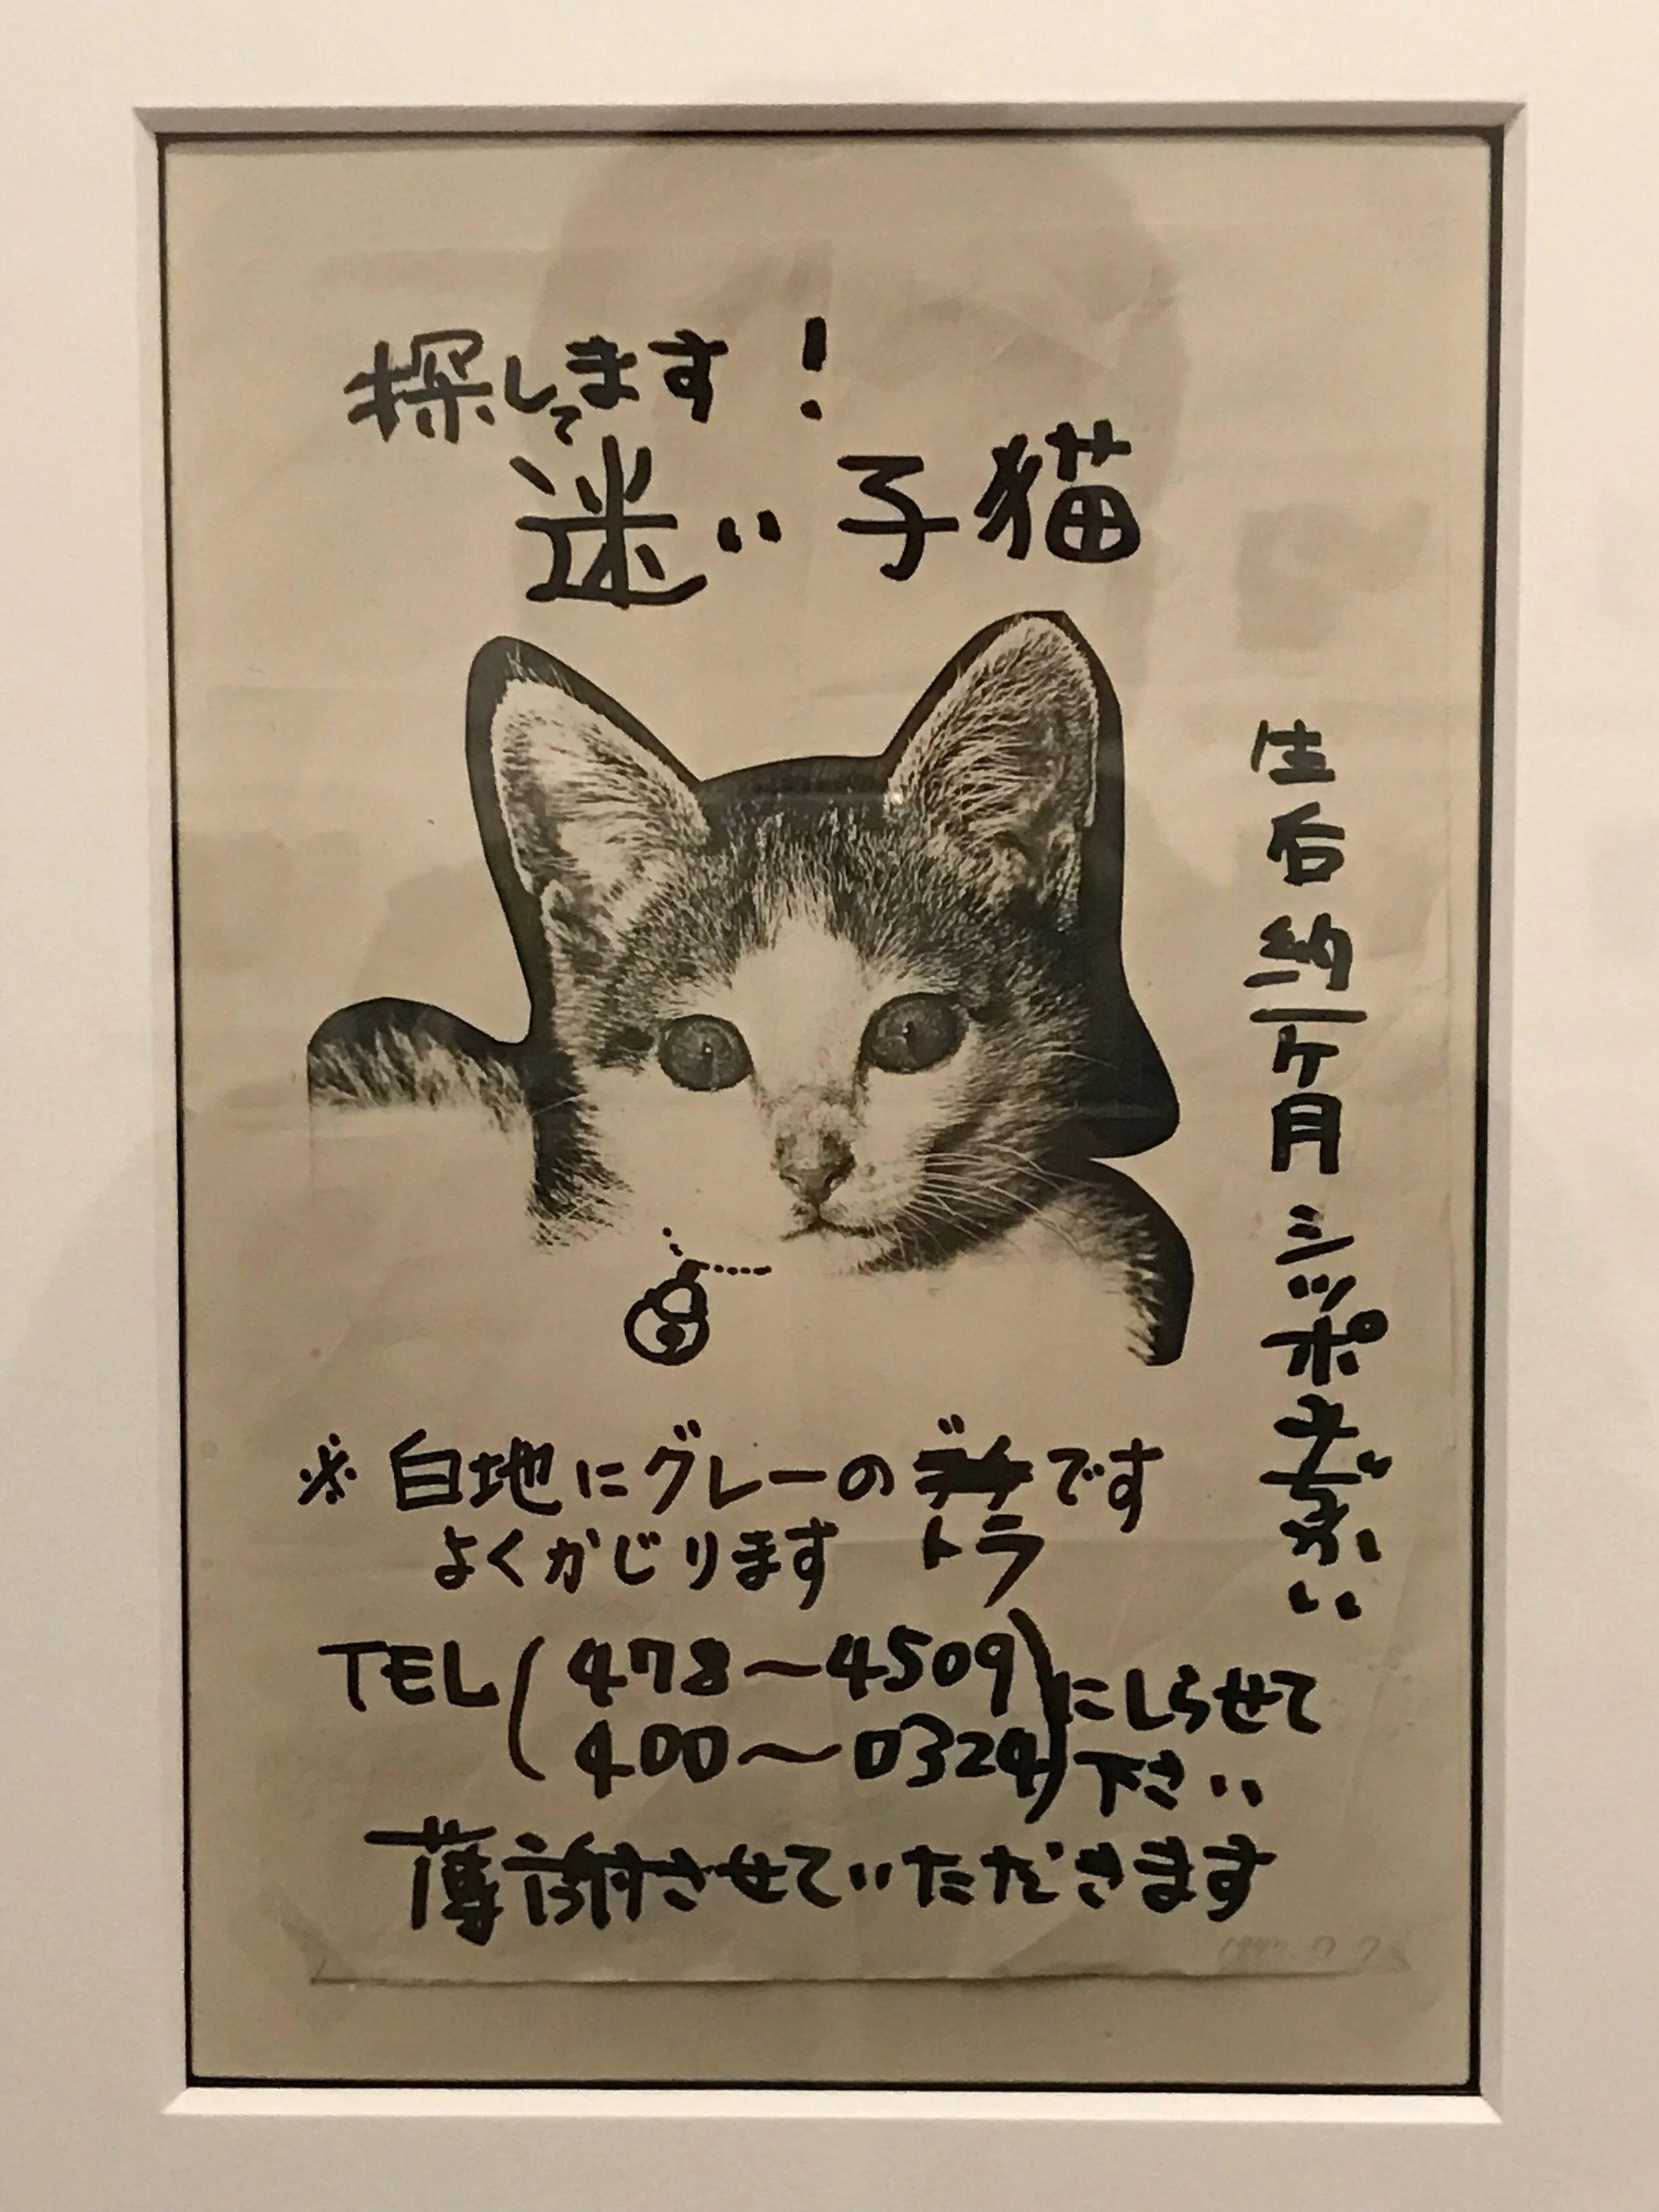 探してます！
迷い子猫
生后約一ヶ月シッポながい
※白地にグレーのトラです
よくかじります
TEL(478〜4509
400〜0324)にしらせて
下さい
薄謝させていただきます